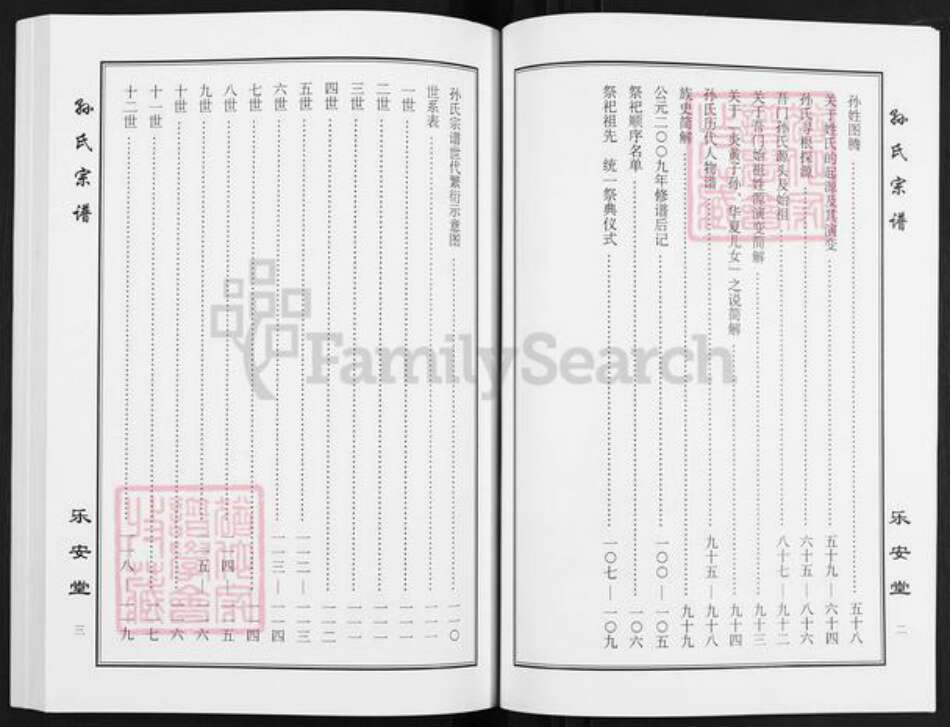 孙氏宗谱
孙姓图腾 五十八
关于姓氏的起源及其演变 五十九—六十四
孙氏寻根探源 六十五—八十六
吾门孙氏源头及始祖 八十七—九十二
关于吾门始祖姓源演变简解 九十三
关于「炎黄子孙、华夏儿女」之说简解 九十四
孙氏历代人物谱 九十五—九十八
族史简解 九十九
公元二〇〇九年修谱后记 一〇〇—一〇五
祭祀顺序名单 一〇六
祭祀祖先 统一祭典仪式 一〇七—一〇九
乐安堂
二
孙氏宗谱
孙氏宗谱世代繁衍示意图 一一〇
世系表 一一一
一世 一一一
二世 一一一
三世 一一一
四世 一一二
五世 一一二—一一三
六世 一一三—一一四
七世 一一四
八世 一一四—一一五
九世 一一五—一一六
十世 一一六
十一世 一一七
十二世 一一八—一一九
乐安堂
三
FamilySearch